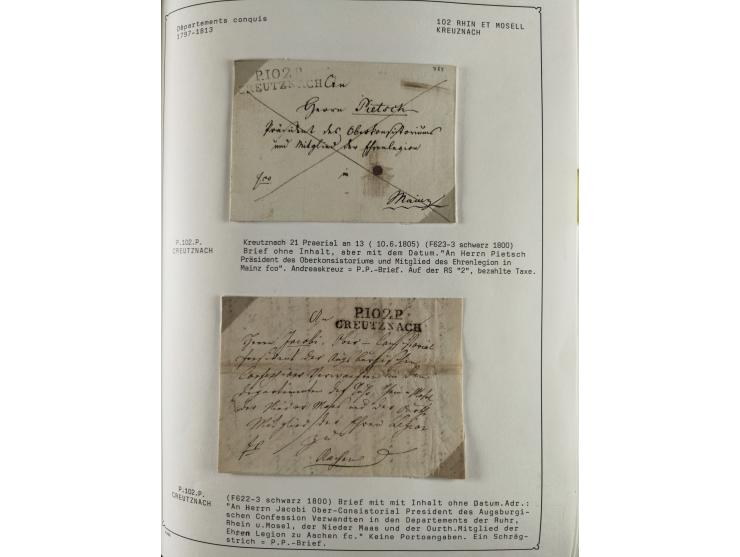 Départements conquis
1797-1813
102 RHIN ET MOSELL
KREUZNACH
P.102.P.
CREUTZNACH
An
Herrn Pietsch
Präsident des Oberkonsistoriums
und Mitglied der Ehrenlegion
fco
in
Mainz
P.102.P.
CREUTZNACH
Kreutznach 21 Praerial an 13 ( 10.6.1805) (F623-3 schwarz 1800)
Brief ohne Inhalt, aber mit dem Datum."An Herrn Pietsch
Präsident des Oberkonsistoriums und Mitglied des Ehrenlegion in
Mainz fco". Andreaskreuz = P.P.-Brief. Auf der RS "2", bezahlte Taxe.
An
P.102.P.
CREUTZNACH
Herrn Jacobi, Ober-Consistorial
President der Augsburgischen
Confession Verwandten in den
Departementen der Ruhr, Rhein u Mosel
der Nieder Maas und der Ourth
Mitglied der Ehren Legion
fc zu
Aachen
P.102.P.
CREUTZNACH
(F622-3 schwarz 1800) Brief mit mit Inhalt ohne Datum.Adr.:
"An Herrn Jacobi Ober-Consistorial President des Augsburgi-
schen Confession Verwandten in den Departements der Ruhr,
Rhein u.Mosel, der Nieder Maas und der Ourth.Mitglied der
Ehren Legion zu Aachen fc." Keine Portoangaben. Ein Schräg-
strich = P.P.-Brief.